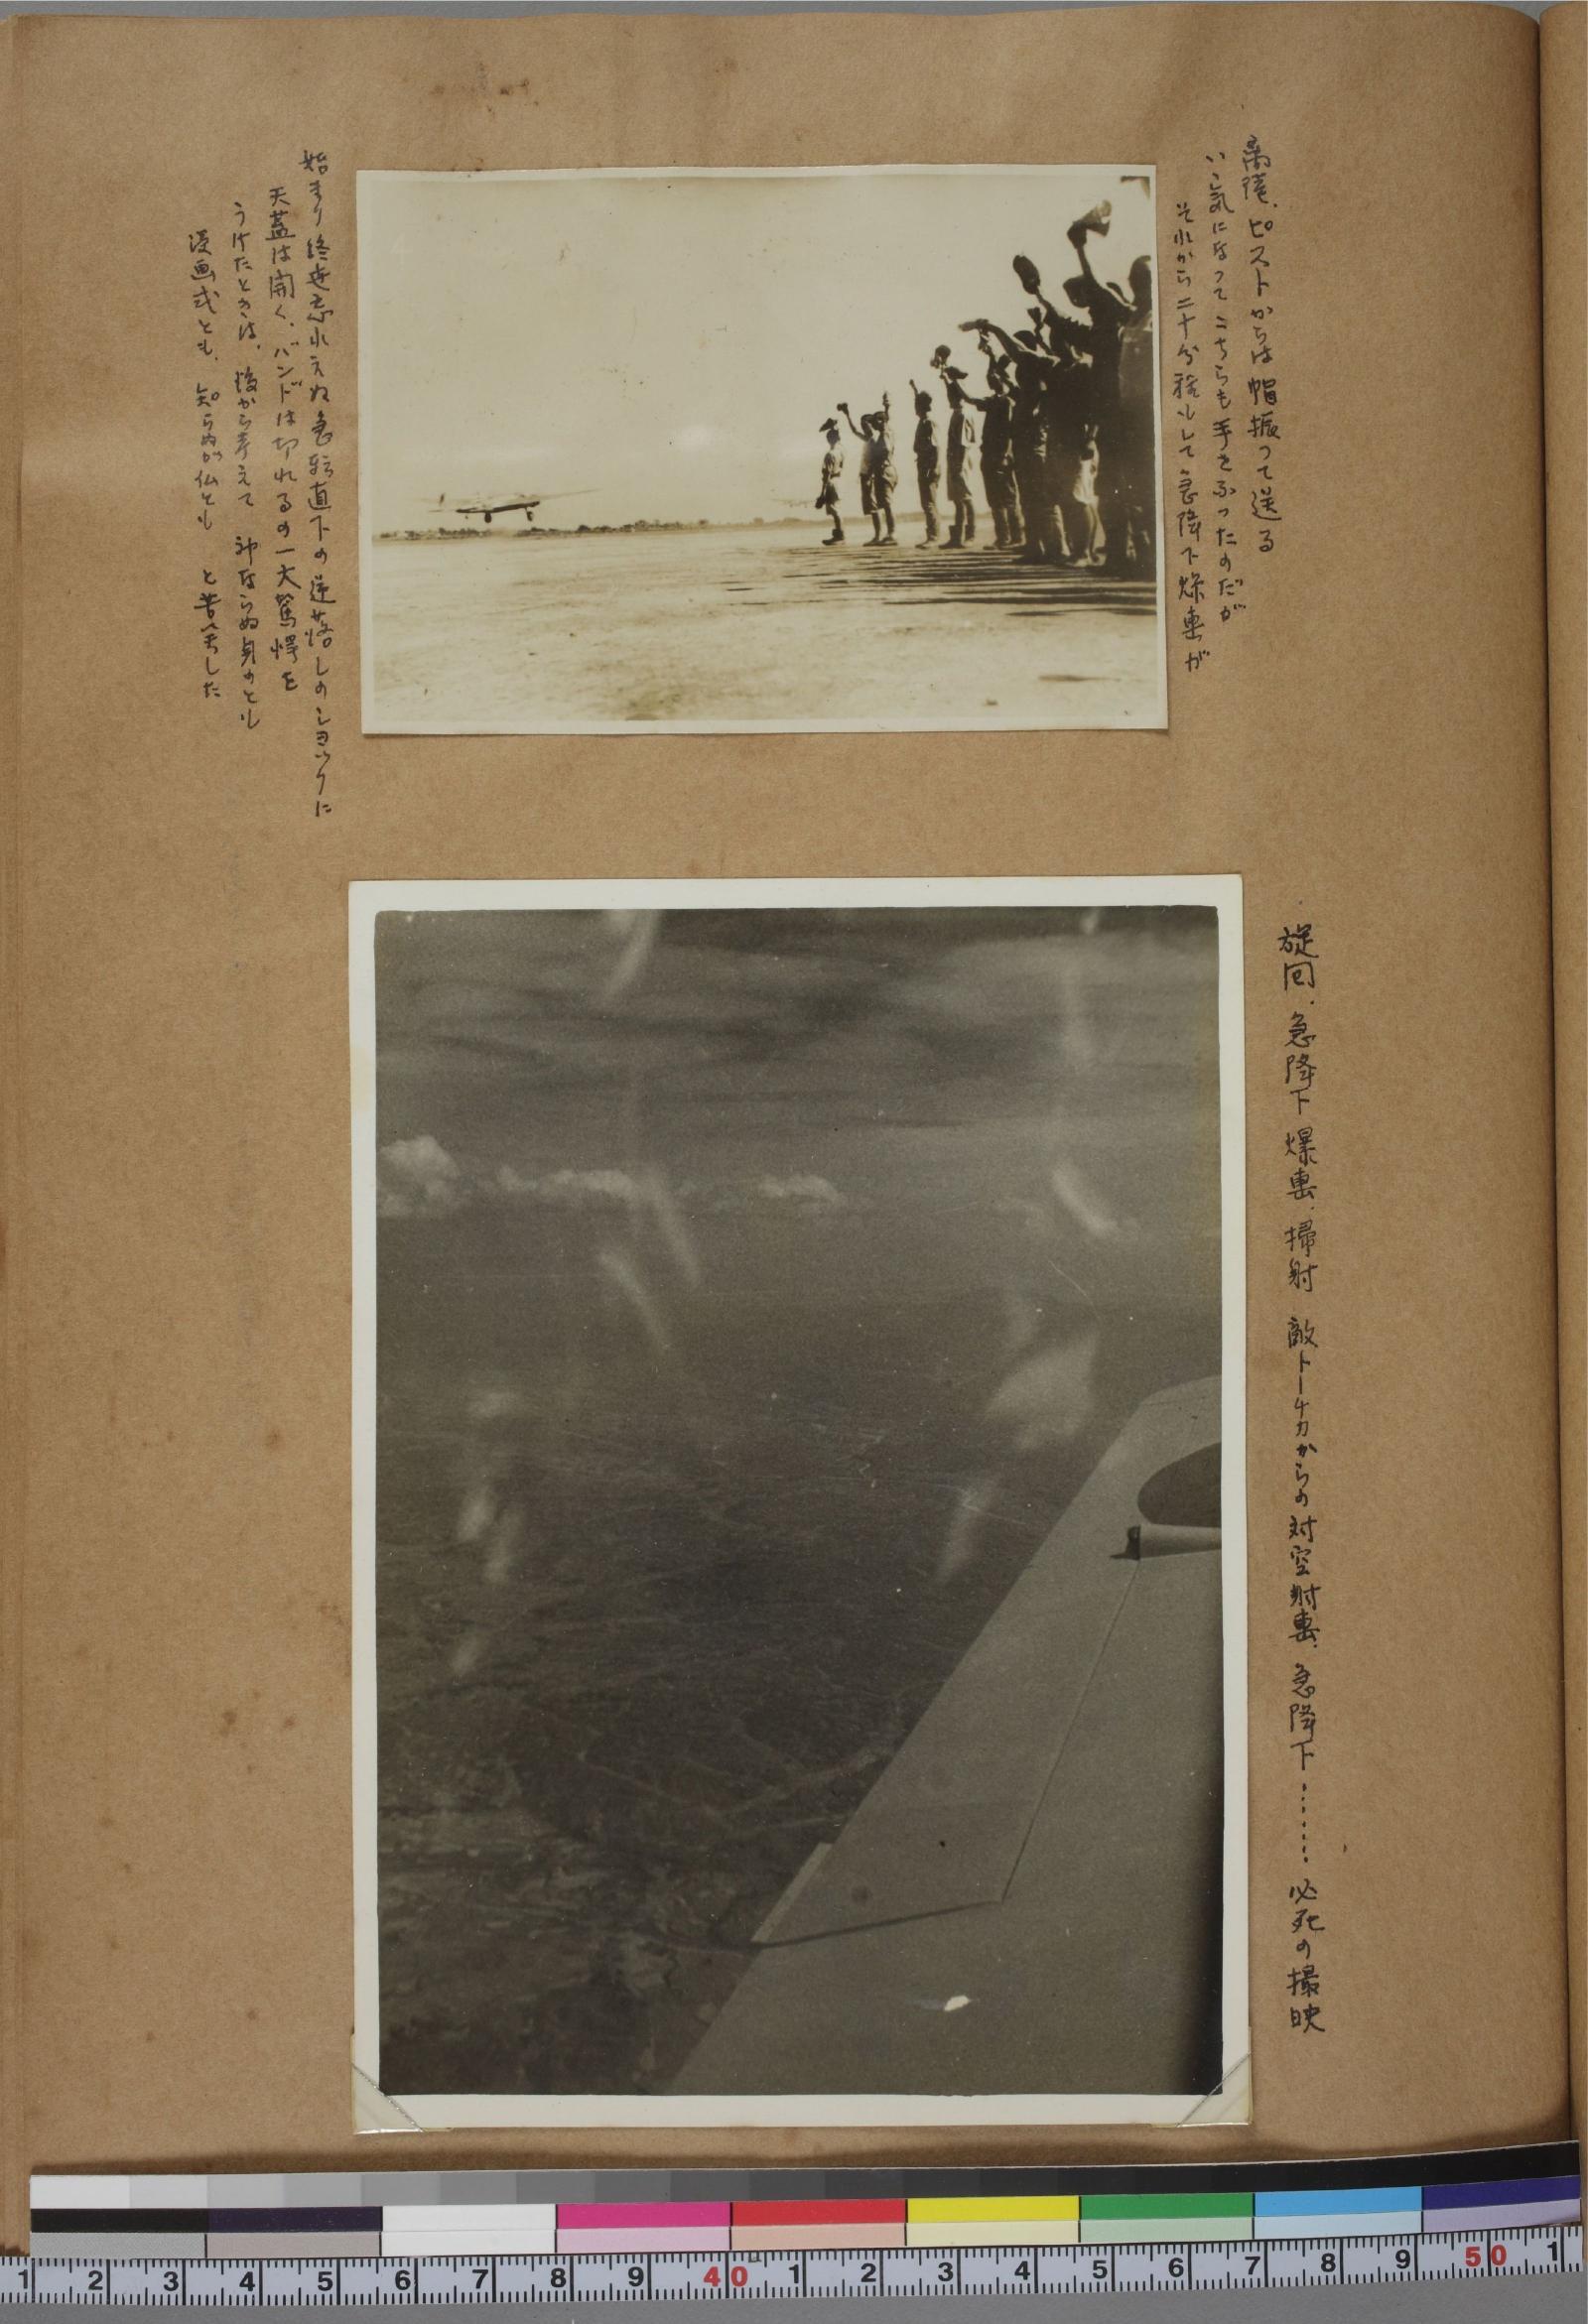 離陸、ピストからは帽振って送る
いゝ気になってこちらも手をふったのだが
それから二十分程して急降下爆撃が
始まり終世忘れえぬ急転直下の逆落しのショックに
天蓋は開く、バンドは切れるの一大驚愕を
うけたときは、後から考えて 神ならぬ身のとも
漫画式とも、知らぬが仏とも と苦笑した
旋回、急降下爆撃、掃射 敵トーチカからの対空射撃、急降下……… 必死の撮映
1 2 3 4 5 6 7 8 9 40 1 2 3 4 5 6 7 8 9 50 1